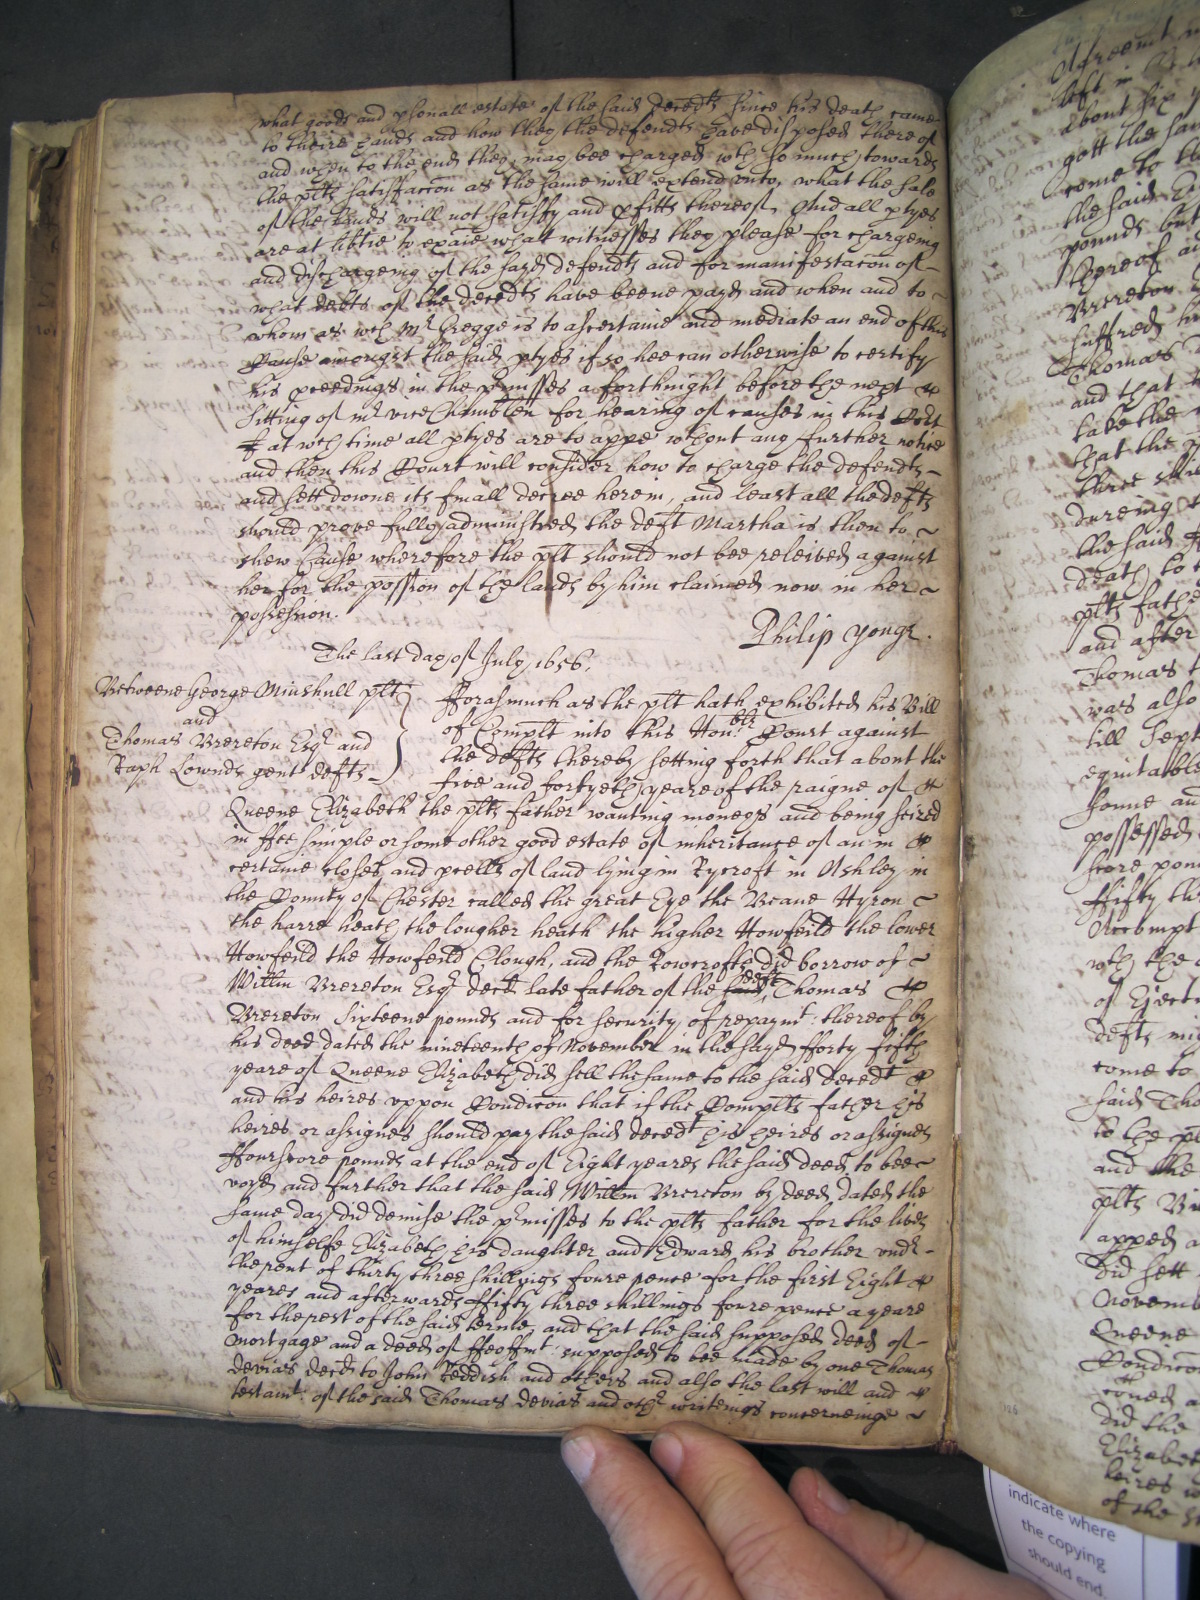 what goods and psonall estate of the said Decedts since his death came
to theire hands and how they the defendts have disposed thereof
and when to the end they may bee charged wth so much towards
the plts satisfaccon as the same will extend unto, what the sale
of the lands will not satisfy and pfitts thereof, And all ptyes
are at libtie to exaie what witnesses they please for chargeing
and dischargeing of the sayd defendts and for manifestacon of
what debts of the decedts have beene payd and when and to
whom as wch Mr Gregge is to ascertaine and mediate an end of this
Cause amongst the said ptyes if so hee can otherwise to certify
his pceedings in the pmisses a forthnight before the next
Sitting of mr vice Chamblen for hearing of causes in this Cort
at wch time all ptyes are to appe wthout any further notice
and then this Court will consider how to charge the defendts
and sett downe its finall decree herein, and least all the defts
should prove fully administred the deft Martha is then to
shew Cause wherefore the plt should not bee releived against
her for the possion of the lands by him claimed now in her
possession.
Philip Yonge.
The last day of July 1656.
Betweene George Minshull plt
and
Thomas Brereton Esqr and
Raph Lownds gent defts
Fforasmuch as the plt hath exhibited his Bill
of Complt into this Honble Court against
the defts thereby setting forth that about the
five and fortyeth yeare of the raigne of
Queene Elizabeth the plts father wanting moneys and being seized
in ffee simple or some other good estate of inheritance of an in
certaine closes and pcells of land lying in Rycroft in Ashley in
the County of Chester called the great Eye the Beane Hyron
the harre heath the lougher heath the higher Howfeild the lower
Howfeild the Howfeild Clough, and the Rowcrofts did borrow of
Willm Brereton Esqr decd late father of the said deft Thomas
Brereton Sixteene pounds and for security of repaymt thereof by
his deed dated the nineteenth of November in the sayd fforty fifth
yeare of Queene Elizabeth did sell the same to the said decedt
and his heires uppon Condicon that if the Complts father his
heires or assignes should pay the said decedt his heires or assignes
ffourscore pounds at the end of Eight yeares the said deed to bee
voyd and further that the said Willm Brereton by deed dated the
same day did demise the pmisses to the plts father for the lives
of himselfe Elizabeth his daughter and Edward his brother undr
the rent of thirty three shillings foure pence for the first Eight
yeares and afterwards ffifty three shillings foure pence a yeare
for the rest of the said terme, and that the said supposed deed of
mortgage and a deed of ffeoffmt supposed to bee made by one Thomas
Devias decd to John Reddish and others and also the last will and
testamt of the said Thomas Devias and othr writeings concerneinge
Agreemt
left in
about six y
gott the sam
come to th
the said E
pounds but
thereof an
Brereton
suffred
Thomas
and that
take the
that the
three shi
dureing
the said
death to
plts father
and after
Thomas
was also
till Sept
equitable
sonne an
possessed
score poun
ffifty thr
Attempt
wth the
of Eject
defts mi
come to
said Tho
to the pl
and the
plts Br
apped a
did sett
Novemb
Queene
Condicon
did the
Elizabeth
heires
of the s
126
indicate where
the copying
should end.